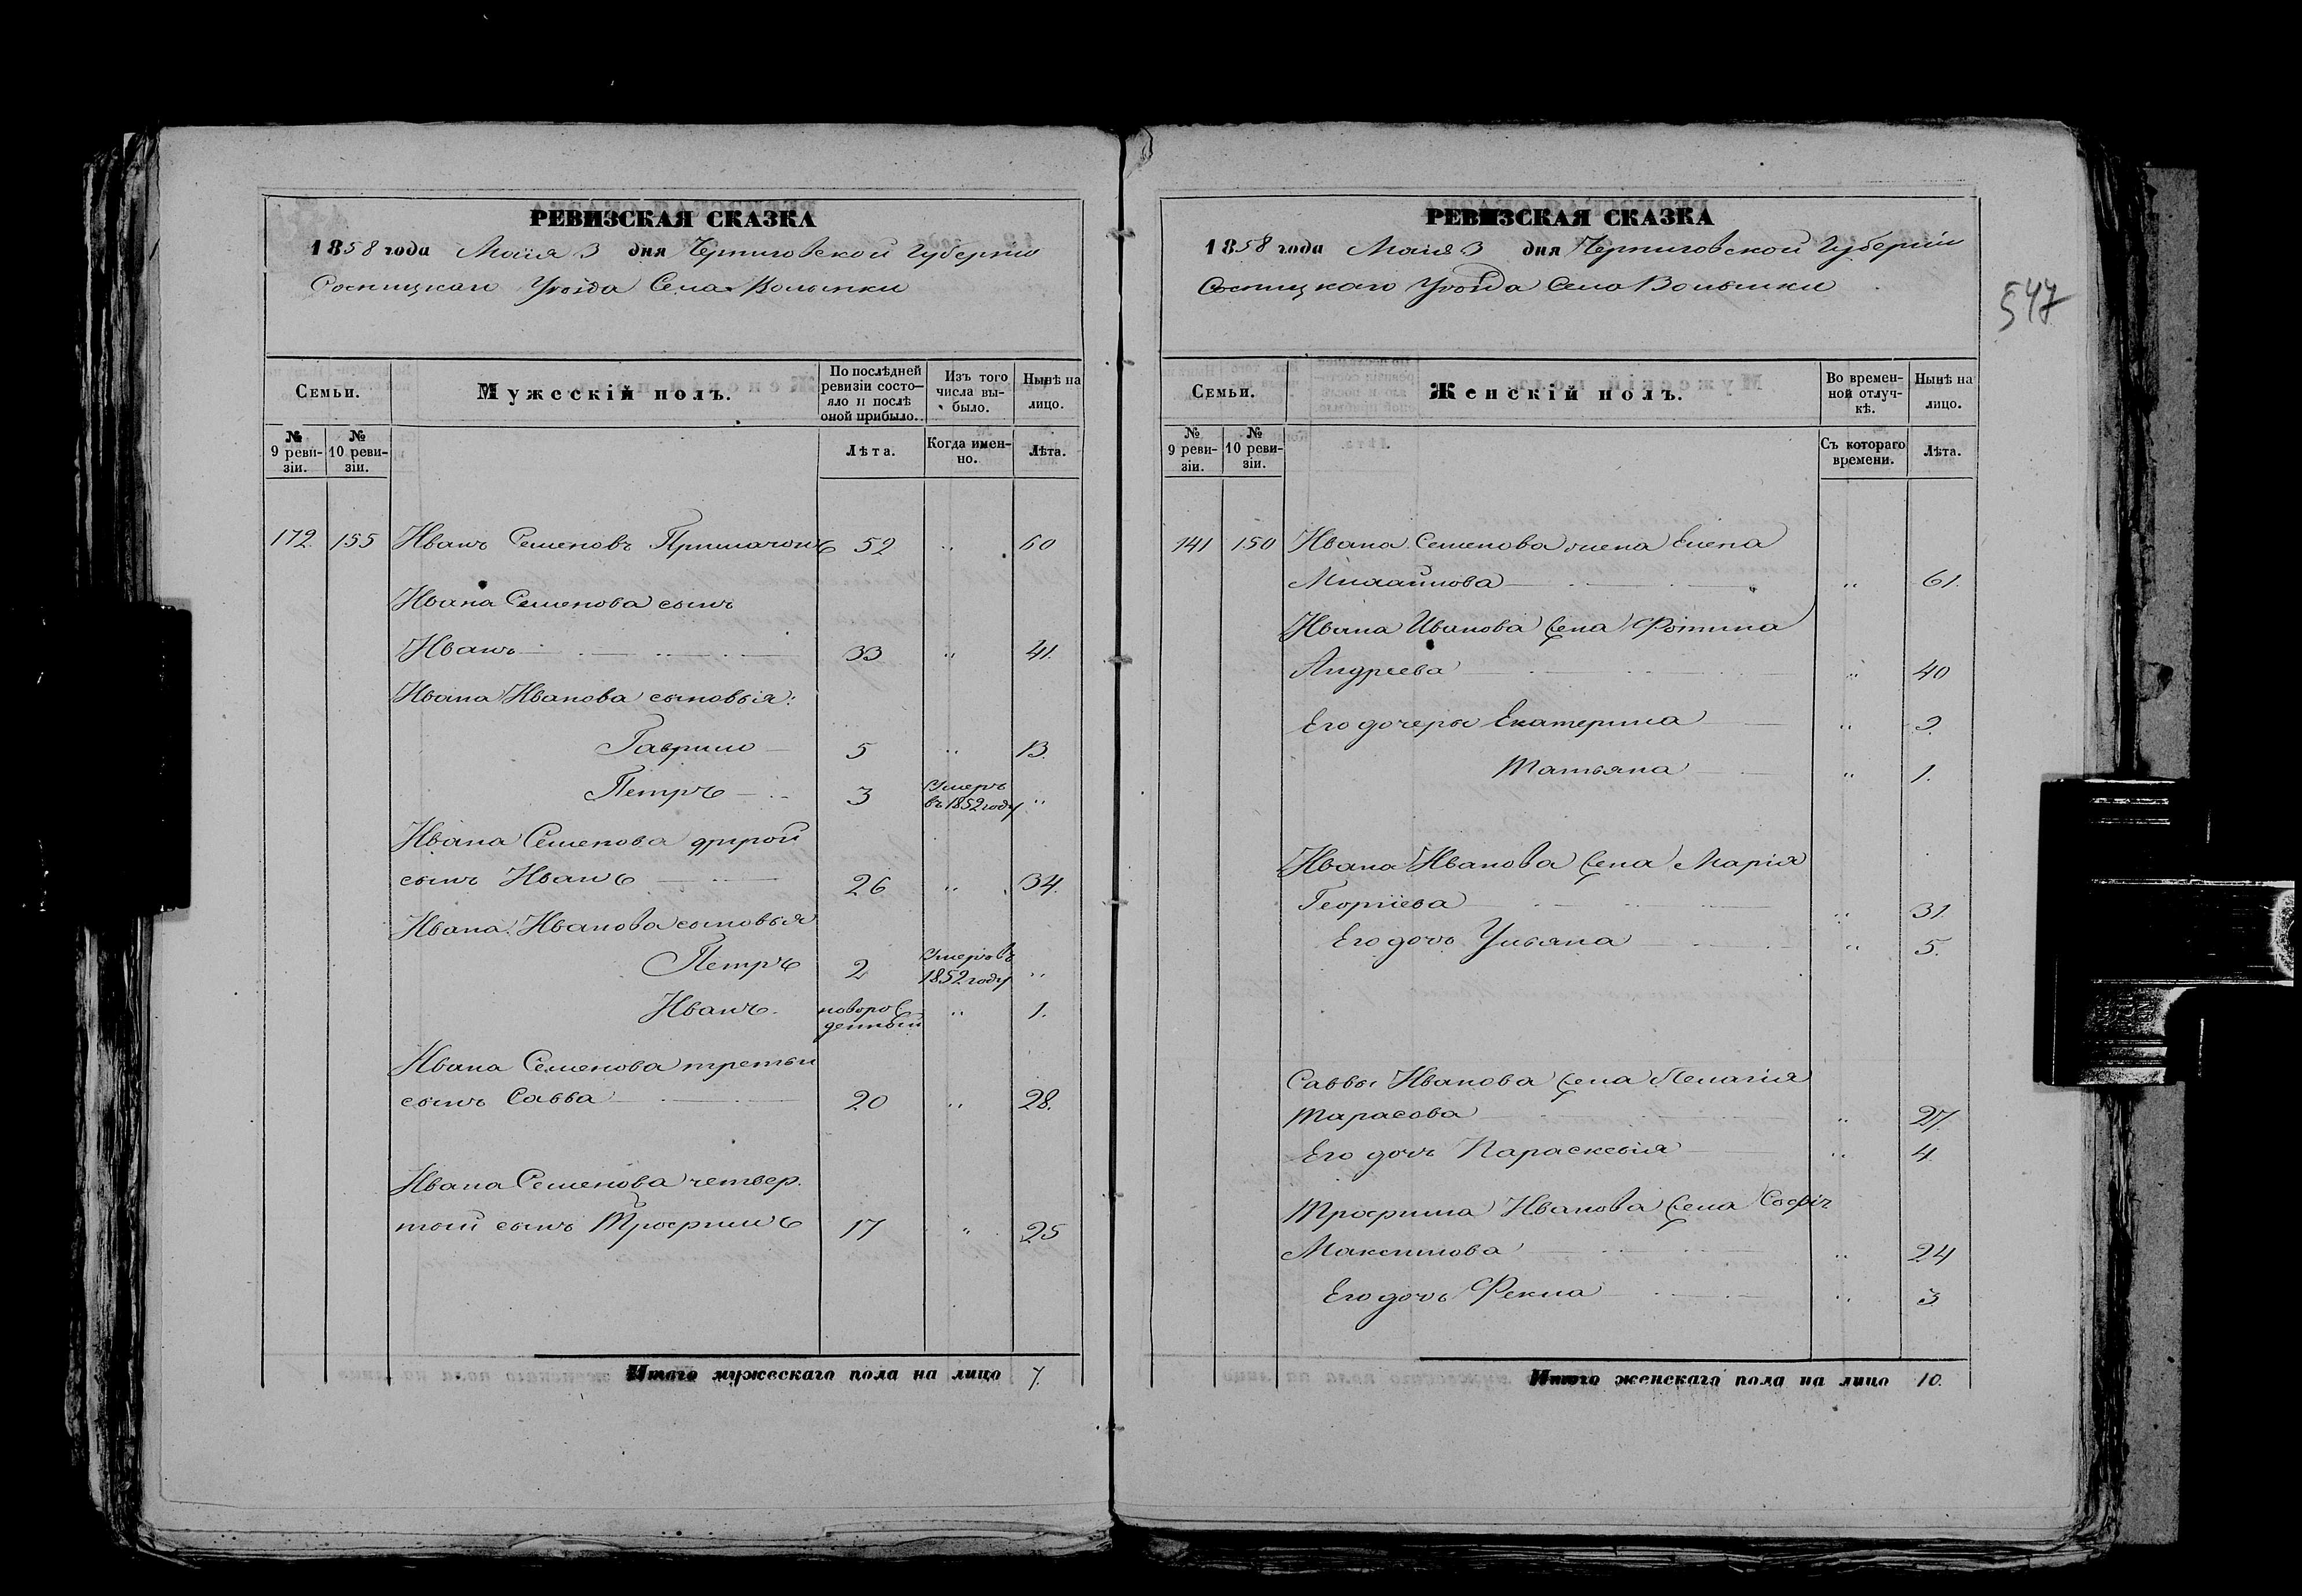 РЕВИЗСКАЯ СКАЗКА
1858 года Маія 3 дня Черниговской Губерніи
Сосницкаго Уѣзда Села Волынки
Семьи.
Мужескій полъ.
По послѣдней ревизіи состо-
яло и послѣ
оной прибыло.
Изъ того
числа вы-
было.
Нынѣ на
лицо.
№
9 реви-
зіи.
№
10 реви-
зіи.
Лѣта.
Когда имен-
но.
Лѣта.
172. 155 Иванъ Семеновъ Примаченъ 52 „ 60
Ивана Семенова сынъ
Иванъ 33 „ 41.
Ивана Иванова сыновья:
Гаврило 5 „ 13.
Петръ 3 Умеръ
въ 1852 году „
Ивана Семенова другой
сынъ Иванъ 26 „ 34.
Ивана Иванова сыновья
Петръ 2 Умеръ въ
1852 году „
Иванъ. новорож-
денный „ 1.
Ивана Семенова третьи
сынъ Савва 20 „ 28.
Ивана Семенова четвер.
тый сынъ Трофимъ 17 „ 25
Итого мужескаго пола на лицо 7.
РЕВИЗСКАЯ СКАЗКА
1858 года Маія 3 дня Черниговской Губерніи
Сосницкаго Уѣзда Села Волынки
547
Семьи.
Женскій полъ.
Во времен-
ной отлуч-
кѣ.
Нынѣ на
лицо.
№
9 реви-
зіи.
№
10 реви-
зіи.
Съ котораго
времени.
Лѣта.
141 150 Ивана Семенова жена Елена
Михайлова „ 61.
Ивана Иванова жена Фотина
Андреева „ 40
Его дочеры Екатерина „ 9
Татьяна „ 1.
Ивана Иванова жена Марія
Георгіева „ 31.
Его дочь Ульяна „ 5.
Саввы Иванова жена Пелагія
Тарасова „ 27.
Его дочь Параскевія „ 4
Трофима Иванова жена Софія
Максимова „ 24
Его дочь Фекла „ 3
Итого женскаго пола на лицо 10.